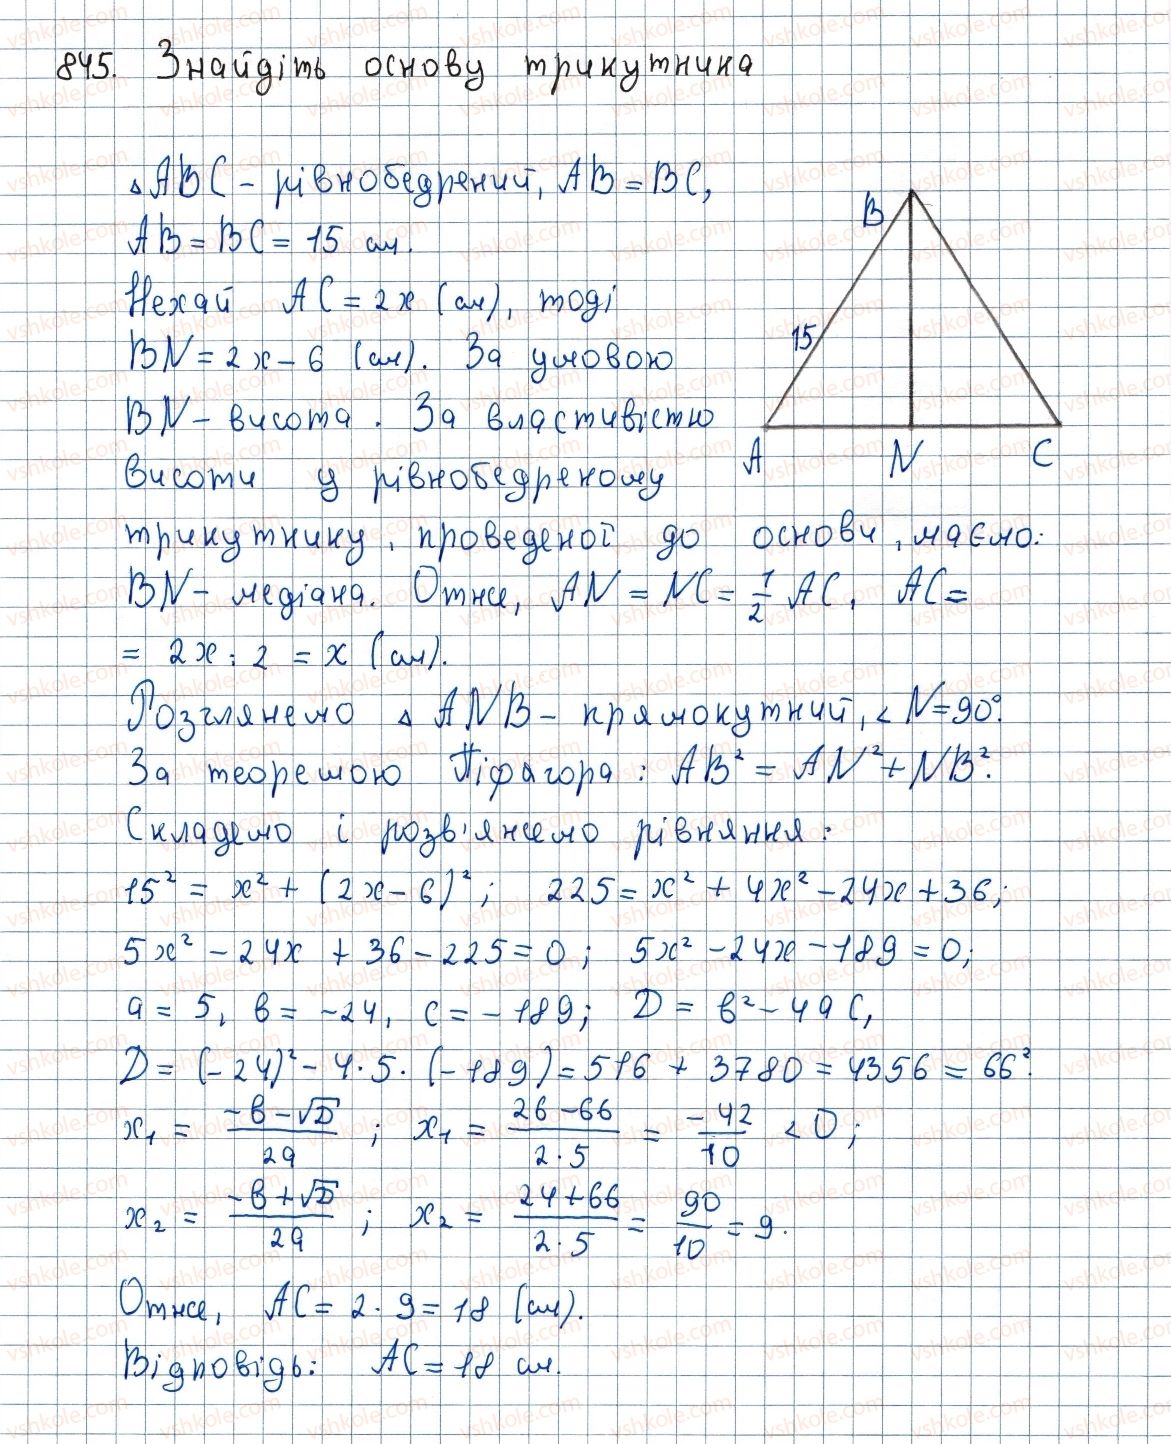 845. Знайдіть основу трикутника
△ABC – рівнобедрений, AB = BC,
AB = BC = 15 см.
Нехай AC = 2x (см), тоді
BN = 2x – 6 (см). За умовою
BN – висота. За властивістю
висоти у рівнобедреному
трикутнику, проведеної до основи, маємо:
BN – медіана. Отже, AN = NC = 1/2 AC, AC =
= 2x : 2 = x (см).
Розглянемо △ANB – прямокутний, ∠N = 90°.
За теоремою Піфагора: AB² = AN² + NB².
Складемо і розв'яжемо рівняння:
15² = x² + (2x – 6)²; 225 = x² + 4x² – 24x + 36;
5x² – 24x + 36 – 225 = 0; 5x² – 24x – 189 = 0;
a = 5, b = –24, c = –189; D = b² – 4ac,
D = (–24)² – 4·5·(–189) = 516 + 3780 = 4356 = 66².
x₁ = (–b – √D)/2a; x₁ = (26 – 66)/(2·5) = –42/10 < 0;
x₂ = (–b + √D)/2a; x₂ = (24 + 66)/(2·5) = 90/10 = 9.
Отже, AC = 2·9 = 18 (см).
Відповідь: AC = 18 см.
B
15
A N C
vshkole.com